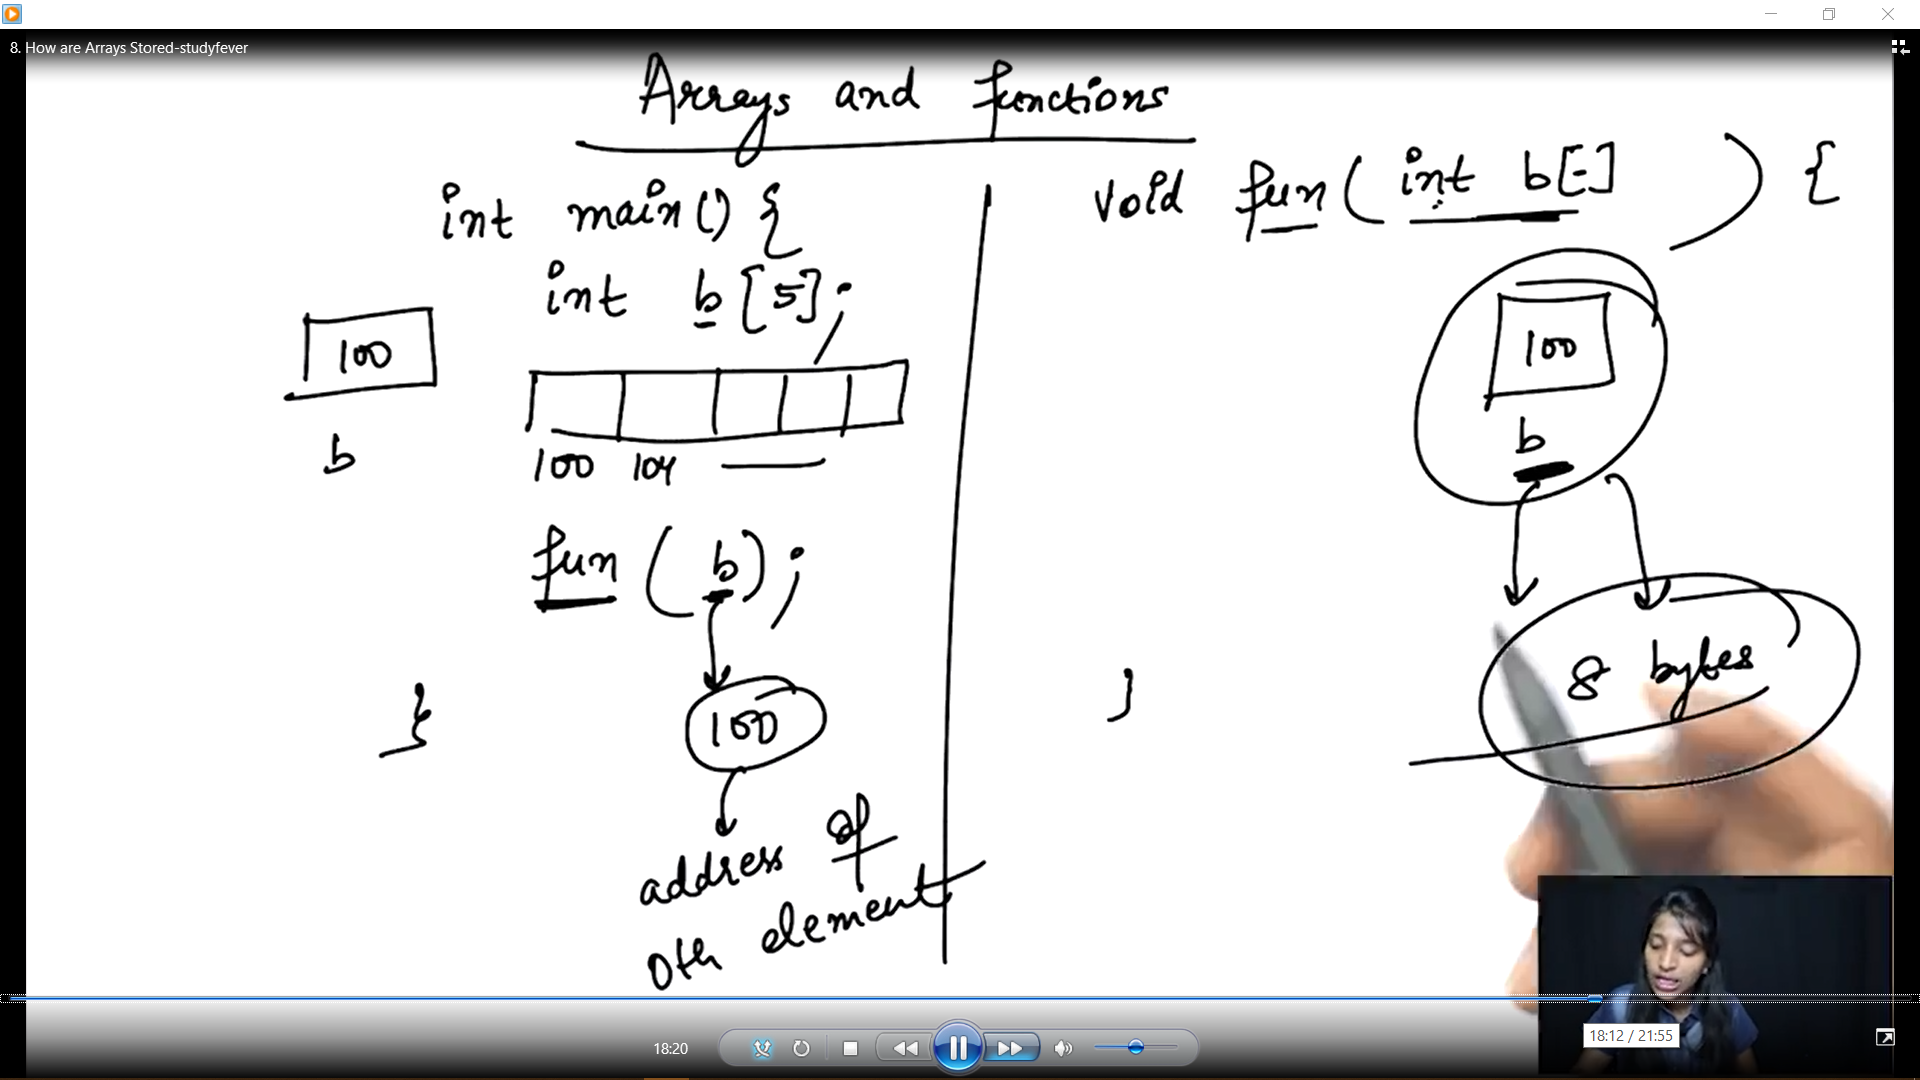 8. How are Arrays Stored-studyfever
Arrays and functions
int main() {
int b[5];
100
b
100 104
fun (b);
100
address of
0th element
}
void fun( int b[-] ) {
100
b
8 bytes
}
18:20
18:12 / 21:55